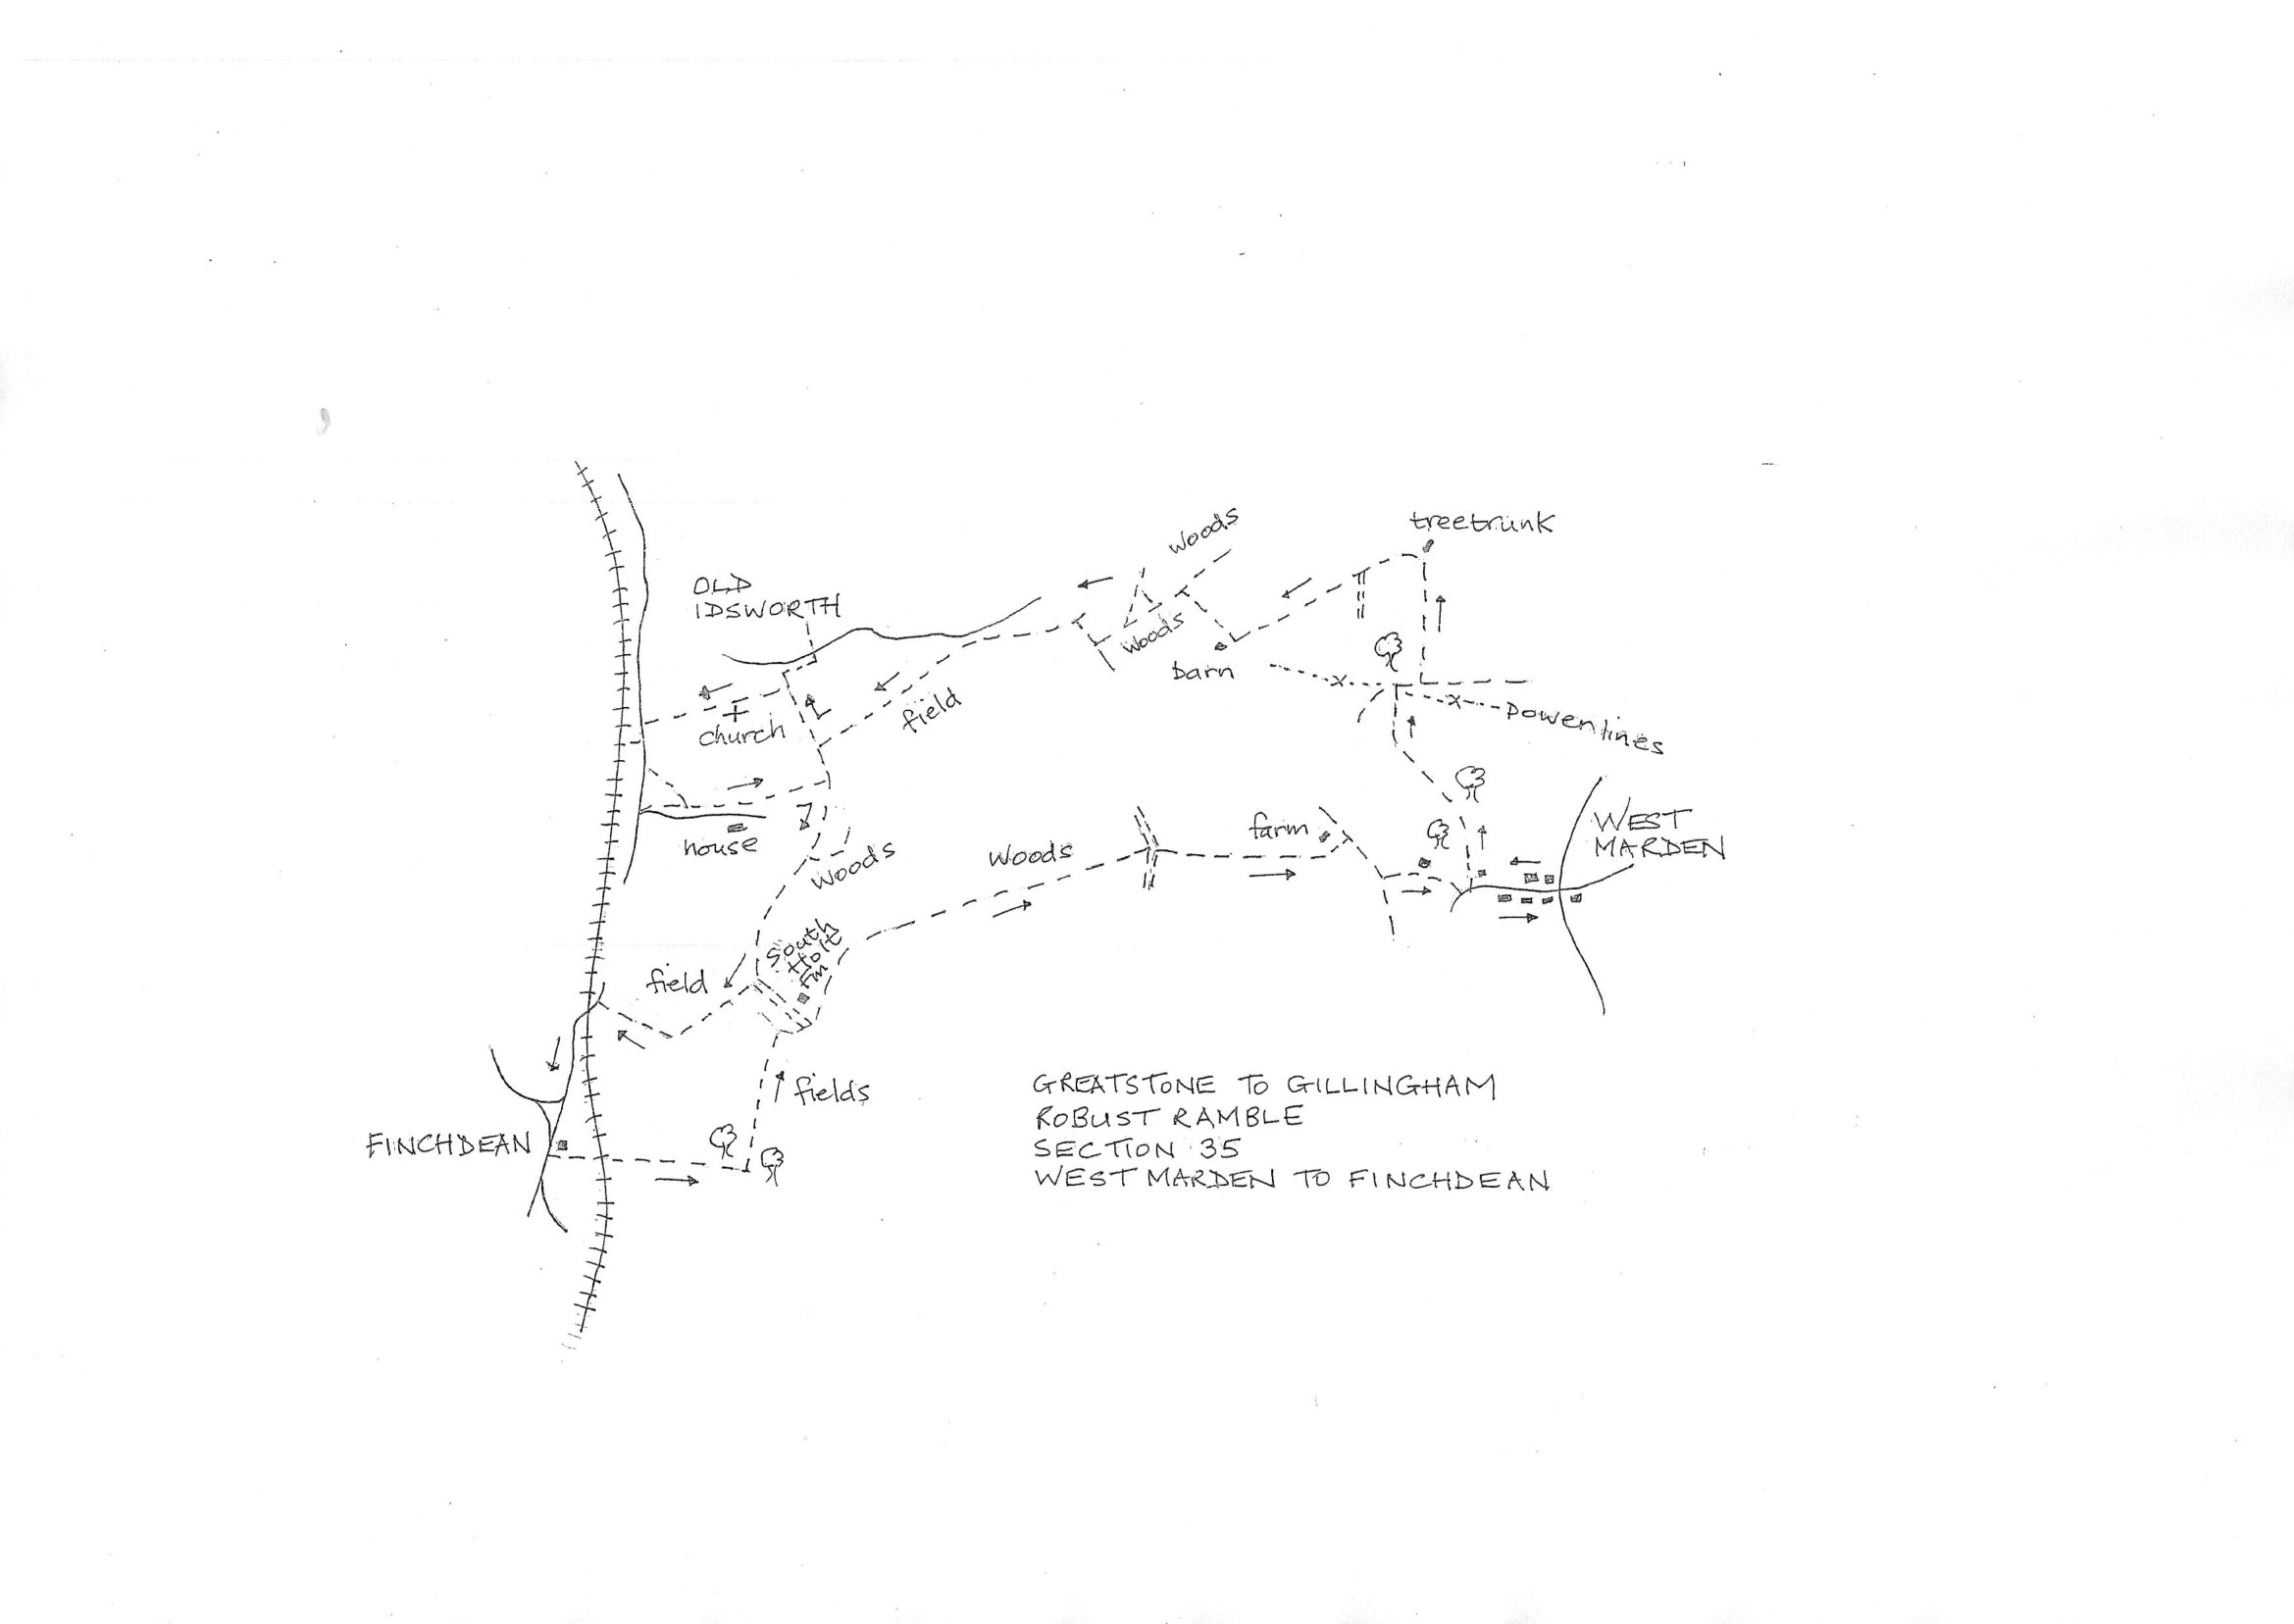 woods
treetrunk
OLD
IDSWORTH
woods
barn
church
field
powerlines
house
woods
woods
farm
WEST
MARDEN
South
Holt
Fm
field
fields
FINCHDEAN
GREATSTONE TO GILLINGHAM
ROBUST RAMBLE
SECTION 35
WEST MARDEN TO FINCHDEAN